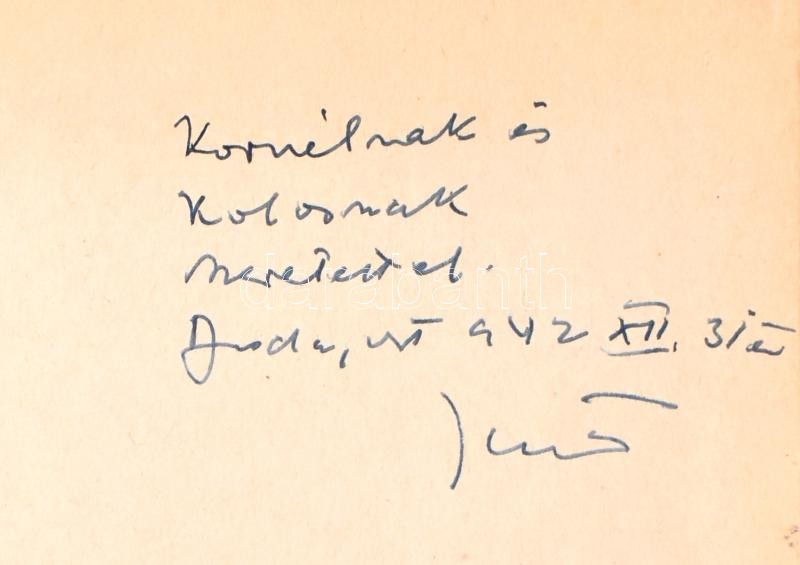 Kornélnak és
Kolosnak
szeretettel.
Buda, vst 942 XII. 31én
Jenő
darabanth